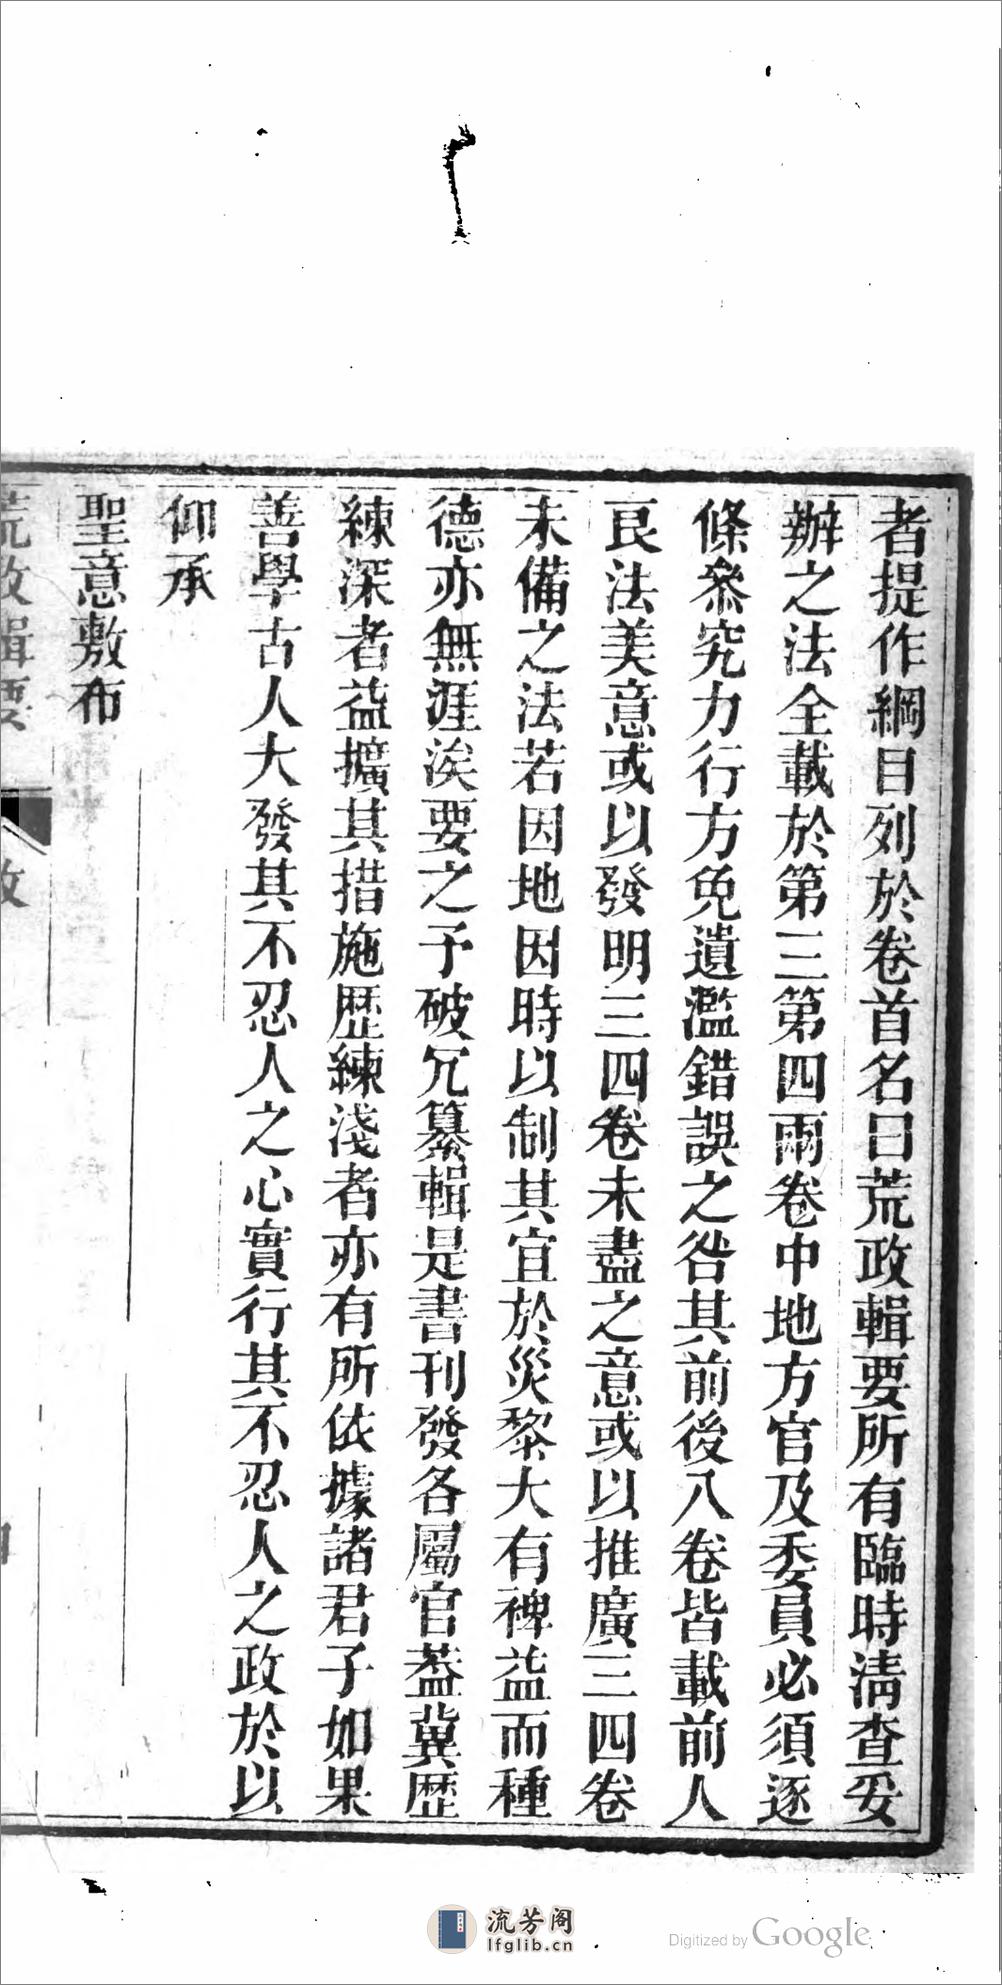 者提作綱目列於卷首名曰荒政輯要所有臨時清查妥
辦之法全載於第三第四兩卷中地方官及委員必須逐
條叅究力行方免遺濫錯誤之咎其前後八卷皆載前人
良法美意或以發明三四卷未盡之意或以推廣三四卷
未備之法若因地因時以制其宜於災黎大有裨益而種
德亦無涯涘要之予破冗纂輯是書刊發各屬官葢冀歷
練深者益擴其措施歷練淺者亦有所依據諸君子如果
善學古人大發其不忍人之心實行其不忍人之政於以
仰承
聖意敷布
荒政輯要
流芳阁
lfglib.cn
Digitized by Google